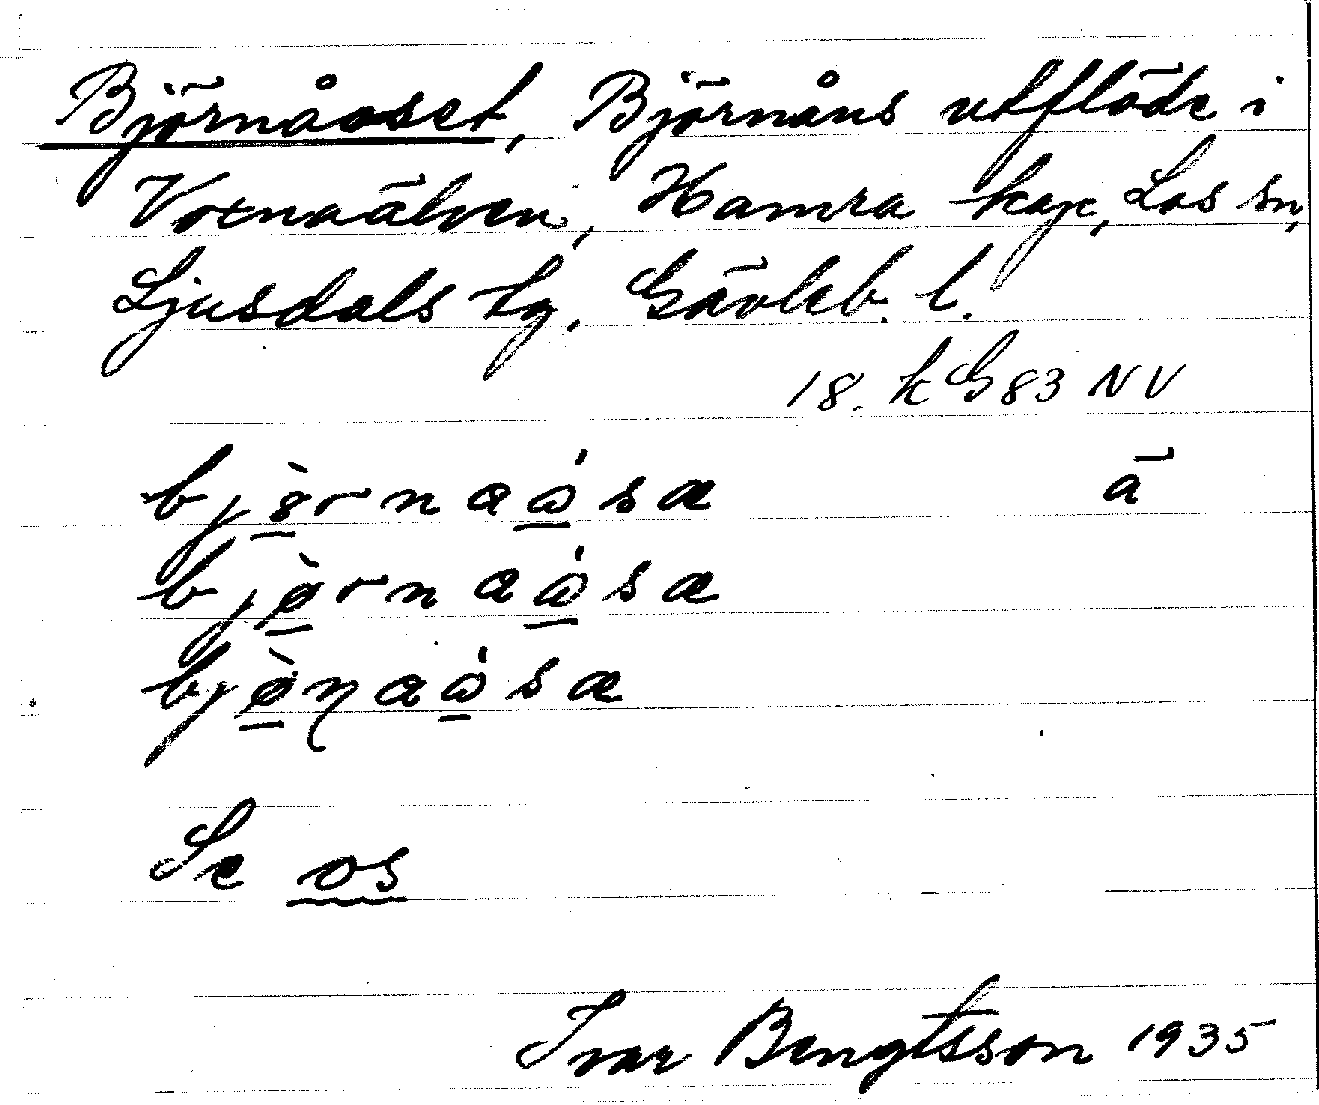 Björnåoset, Björnåns utflöde i
Voxnaälven, Hamra kap, Los sn,
Ljusdals tg, Gävleb. l.
18. k G 83 NV
bjö̀rnaω̇sæ ā
bjø̀rnaω̇sæ
bjø̀ɳaω̇sæ
Se os
Ivar Bengtsson 1935